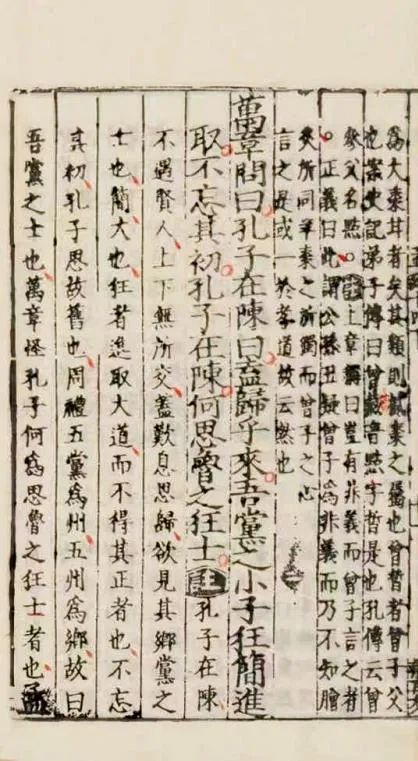 爲大棗耳者矣其類則樲棗之屬也曾晳者曾子父
也案史記弟子傳曰曾蒧音點字晳是也孔傳云曾
參父名點。注上章稱曰豈有非義而曾子言之者
。正義曰此謂公孫丑疑曾子爲非義而乃不知膾
炙所同羊棗之所獨而曾子之心
言之是或一於孝道故云然也
萬章問曰孔子在陳曰盍歸乎來吾黨之小子狂簡進
取不忘其初孔子在陳何思魯之狂士注孔子在陳
不遇賢人上下無所交盖歎息思歸欲見其鄉黨之
士也簡大也狂者進取大道而不得其正者也不忘
其初孔子思故舊也周禮五黨爲州五州爲鄉故曰
吾黨之士也萬章怪孔子何爲思魯之狂士者也孟